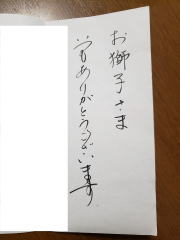 お獅子さま
いつもありがとうございます